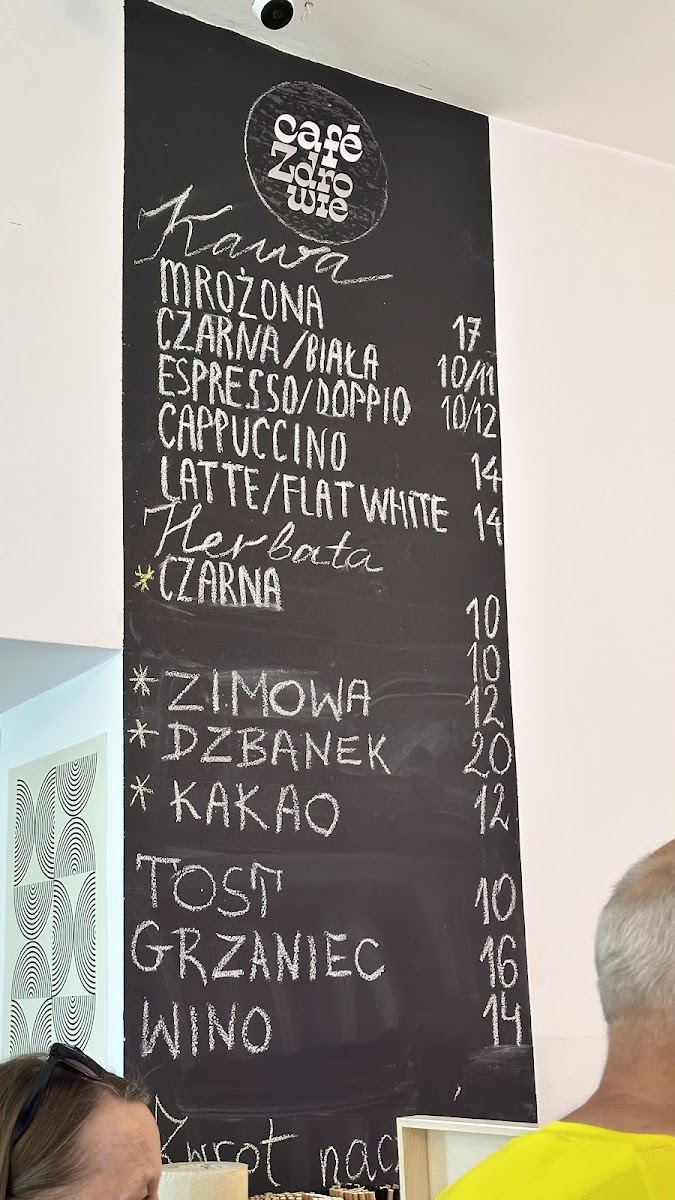 café
Zdro
wie
Kawa
MROŻONA 17
CZARNA/BIAŁA 10/11
ESPRESSO/DOPPIO 10/12
CAPPUCCINO 14
LATTE/FLAT WHITE 14
Herbata
* CZARNA 10
10
* ZIMOWA 12
* DZBANEK 20
* KAKAO 12
TOST 10
GRZANIEC 16
WINO 14
Zwrot